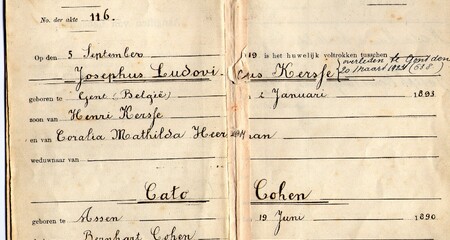 No. der akte 116.
Op den 5 September 19 is het huwelijk voltrokken tusschen
Josephus Ludovicus Kersse (overleden te Gent den
20 Maart 1924 (618)
geboren te Gent (België) 2 Januari 1893
zoon van Henri Kersse
en van Coralia Mathilda Heereman
weduwnaar van
Cato Cohen
geboren te Assen 19 Juni 1890.
Bernhart Cohen